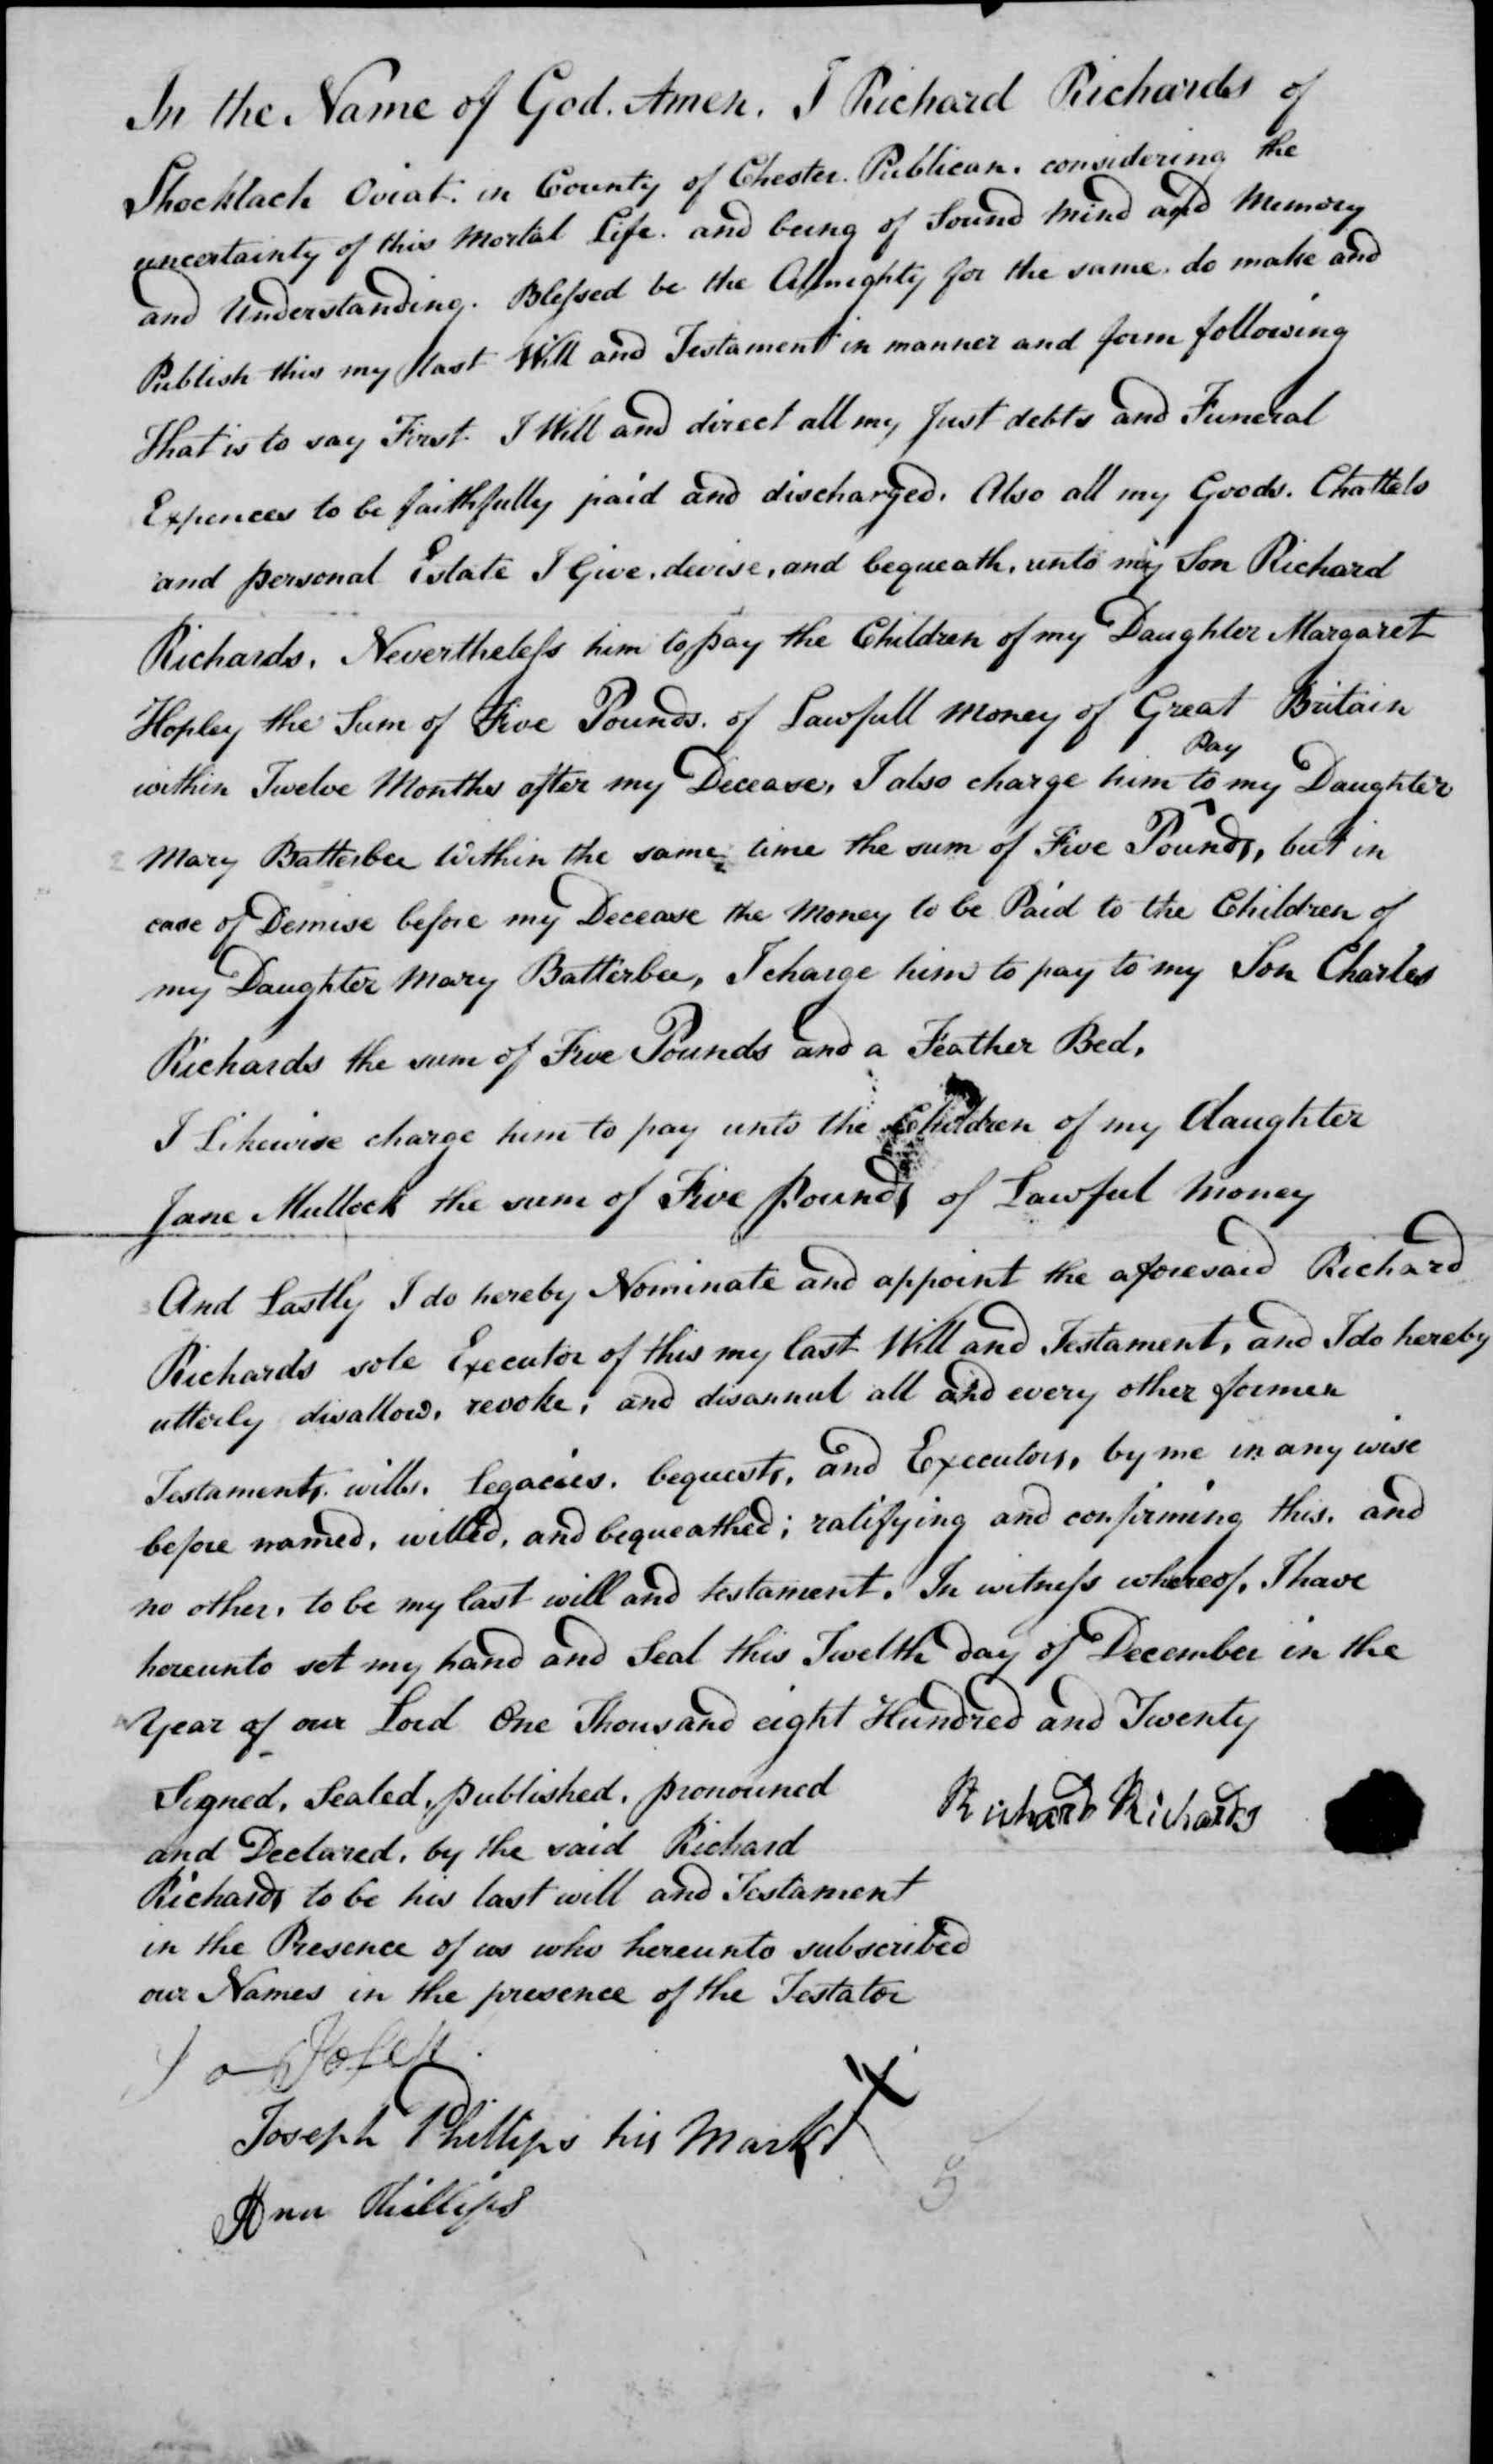 In the Name of God. Amen. I Richard Richards of
Shocklach Oviat. in County of Chester. Publican. considering the
uncertainty of this Mortal Life. and being of Sound Mind and Memory
and Understanding. Blessed be the Almighty for the same. do make and
Publish this my last Will and Testament in manner and form following
That is to say First. I Will and direct all my Just debts and Funeral
Expences to be faithfully paid and discharged. Also all my Goods. Chattels
and personal Estate I Give, devise, and bequeath, unto my Son Richard
Richards. Nevertheless him to pay the Children of my Daughter Margaret
Hopley the Sum of Five Pounds. of Lawfull Money of Great Britain
Pay
within Twelve Months after my Decease, I also charge him to ^ my Daughter
Mary Batterbee Within the same time the sum of Five Pounds, but in
case of Demise before my Decease the Money to be Paid to the Children of
my Daughter Mary Batterbee, I charge him to pay to my Son Charles
Richards the sum of Five Pounds and a Feather Bed.
I Likewise charge him to pay unto the Children of my daughter
Jane Mullock the sum of Five pounds of Lawful Money
And Lastly I do hereby Nominate and appoint the aforesaid Richard
Richards sole Executor of this my last Will and Testament, and I do hereby
utterly disallow, revoke, and disannul all and every other former
Testaments. wills. Legacies. bequests, and Executors, by me in any wise
before named, willed, and bequeathed; ratifying and confirming this, and
no other, to be my last will and testament. In witness whereof, I have
hereunto set my hand and Seal this Twelth day of December in the
Year of our Lord One Thousand eight Hundred and Twenty
Signed, Sealed, published, pronouned
Richard Richards
and Declared, by the said Richard
Richards to be his last will and Testament
in the Presence of us who hereunto subscribed
our Names in the presence of the Testator
Joseph Phillips his Mark X
Ann Phillips
5